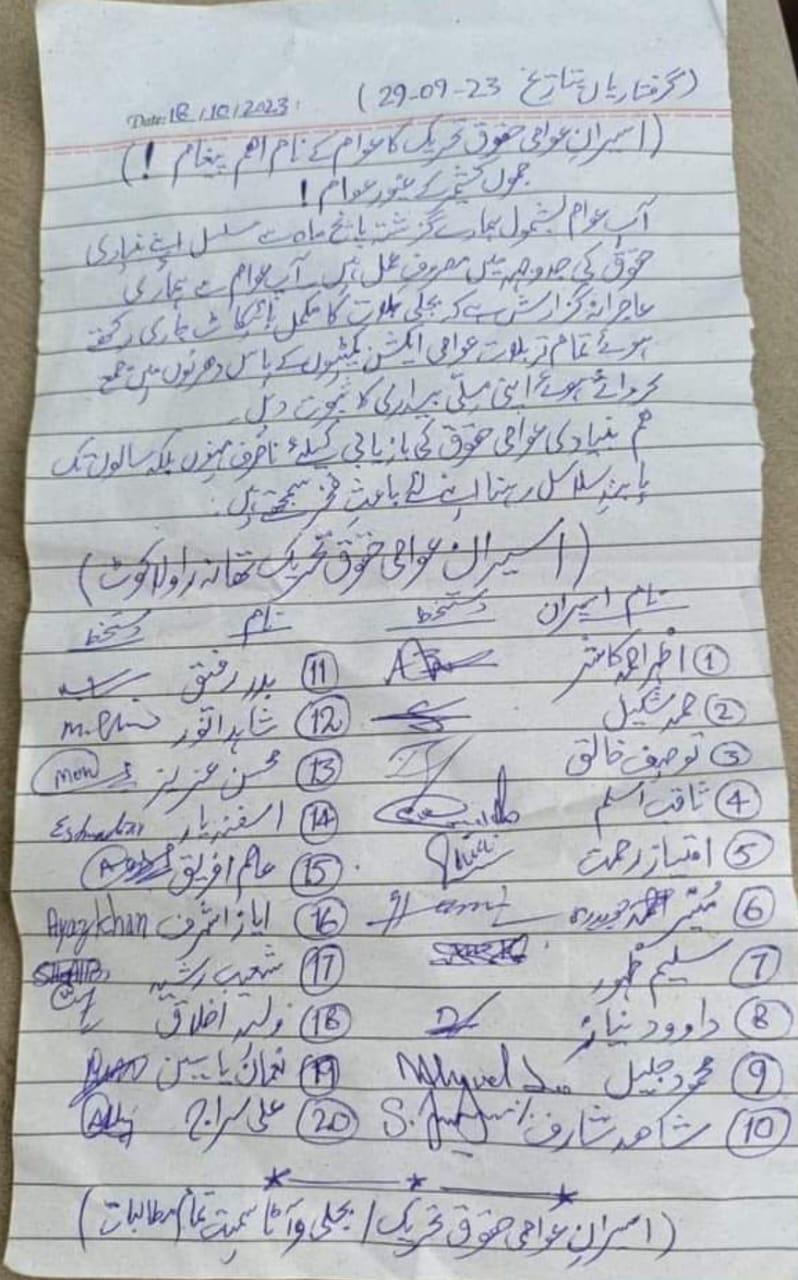 (گرفتاریاں بتاریخ 23-09-29)
Date: 18/10/2023
(اسیرانِ عوامی حقوق تحریک کا عوام کے نام اہم پیغام !)
جموں کشمیر کے غیور عوام !
آپ عوام بشمول ہمارے گزشتہ پانچ ماہ سے مسلسل اپنے بنیادی
حقوق کی جدوجہد میں مصروف عمل ہیں۔ آپ عوام سے ہماری
عاجزانہ گزارش ہے کہ بجلی بلات کا مکمل بائیکاٹ جاری رکھتے
ہوئے تمام تر بلات عوامی ایکشن کمیٹیوں کے پاس دھرنوں میں جمع
کرواتے ہوئے اپنی ملّی بیداری کا ثبوت دیں۔
ہم بنیادی عوامی حقوق کی بازیابی کیلئے ناصرف مہینوں بلکہ سالوں تک
پابندِ سلاسل رہنا اپنے لئے باعثِ فخر سمجھتے ہیں۔
(اسیرانِ عوامی حقوق تحریک تھانہ راولاکوٹ)
نام اسیران دستخط نام دستخط
① اظہر احمد کاشر ⑪ بدر رفیق
② حمد شکیل ⑫ شاہد انور
③ توصیف خالق ⑬ محسن عزیز
④ ثاقب اسلم ⑭ اسفند یار
⑤ امتیاز رحمت ⑮ عالم افریق
⑥ مُبشر احمد ⑯ ایاز اشرف Ayaz Khan
⑦ سلیم ظہور ⑰ شعیب رشید
⑧ داوود نیاز ⑱ ولید اخلاق
⑨ محمود جلیل ⑲ نعمان یاسین
⑩ شاھد شارف ⑳ علی سراج
(اسیرانِ عوامی حقوق تحریک / بجلی و آٹا سمیت تمام مطالبات)